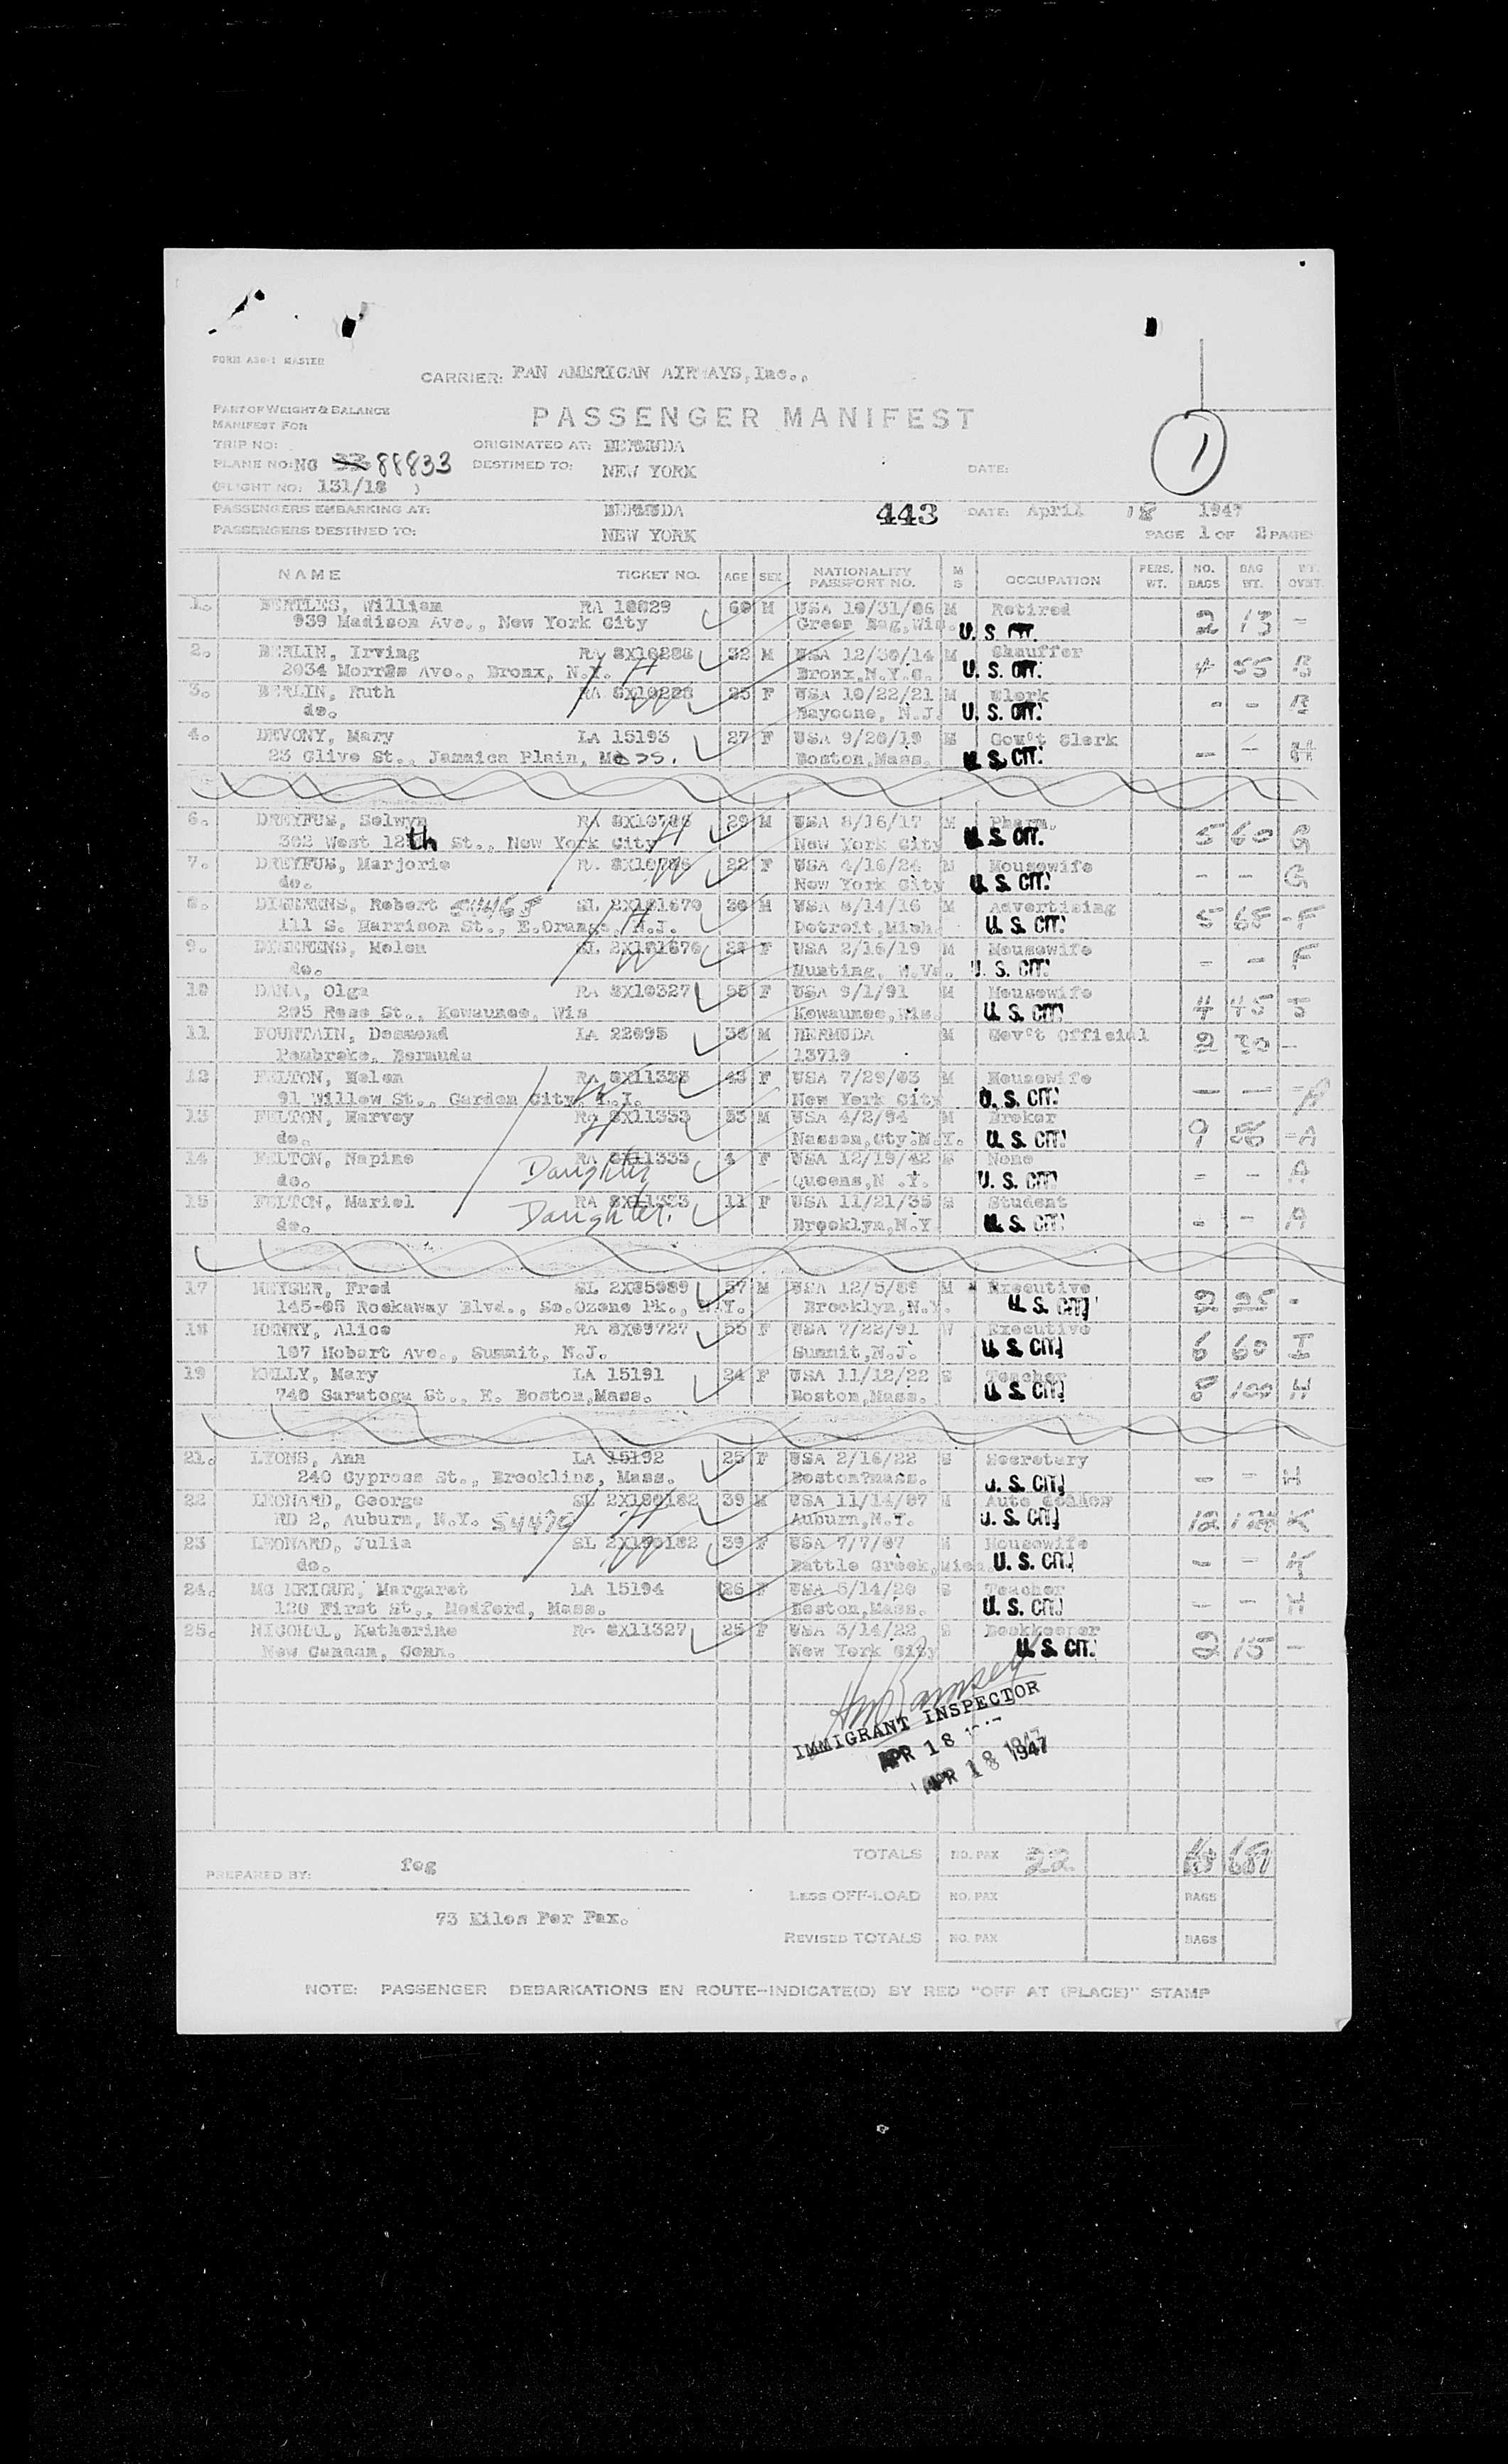 FORM A30-1 MASTER
CARRIER: PAN AMERICAN AIRWAYS, Inc.,
PART OF WEIGHT & BALANCE
MANIFEST FOR
PASSENGER MANIFEST
1
TRIP NO:
ORIGINATED AT: BERMUDA
PLANE NO: NC 88833
DESTINED TO: NEW YORK
DATE:
(FLIGHT NO: 131/18 )
PASSENGERS EMBARKING AT: BERMUDA
443 DATE: April 18 1947
PASSENGERS DESTINED TO: NEW YORK
PAGE 1 OF 2 PAGES
NAME TICKET NO. AGE SEX NATIONALITY PASSPORT NO. M S OCCUPATION PERS. WT. NO. BAGS BAG WT. WT. OVNT.
1. William RA 10029 60 M USA 10/31/86 M Retired 2 13 -
939 Madison Ave., New York City U. S. CIT.
2. BERLIN, Irving RA 32 M USA 12/30/14 M Chauffer 4 55 B
2034 Morris Ave., Bronx, N.Y. H Bronx, N.Y.C. U. S. CIT.
3. BERLIN, Ruth RA 25 F USA 10/22/21 M Clerk - - B
do. W N.J. U. S. CIT.
4. DEVONY, Mary LA 15193 27 F USA 9/20/19 S Gov't Clerk - - H
23 Clive St., Jamaica Plain, Mass. Boston, Mass. U. S. CIT.
6. DREYFUS, Selwyn RA 29 M USA 8/16/17 M Pharm. 5 60 G
302 West 12th St., New York City H New York City U. S. CIT.
7. DREYFUS, Marjorie 22 F USA 4/16/24 M Housewife - - G
do. W New York City U. S. CIT.
8. Robert SL 30 M USA 8/14/16 M Advertising 5 65 F
111 S. Harrison St., E.Orange, N.J. H Detroit, Mich. U. S. CIT.
9. Helen SL 28 F USA 2/16/19 M Housewife - - F
do. W W.Va. U. S. CIT.
10 DANA, Olga RA SX10327 55 F USA 9/1/91 M Housewife 4 45 J
205 Rose St., Kewaunee, Wis Kewaunee, Wis. U. S. CIT.
11 FOUNTAIN, Desmond LA 22095 36 M BERMUDA M Gov't Official 2 30 -
Pembroke, Bermuda 13719
12 FELTON, Helen RA SX11333 43 F USA 7/29/03 M Housewife - - A
91 Willow St., Garden City, L.I. W New York City U. S. CIT.
13 FELTON, Harvey RA SX11333 53 M USA 4/2/94 M Broker 9 A
do. H U. S. CIT.
14 FELTON, RA SX11333 4 F USA 12/19/42 S None - - A
do. Daughter Queens, N.Y. U. S. CIT.
15 FELTON, Muriel RA SX11333 11 F USA 11/21/35 S Student - - A
do. Daughter. Brooklyn, N.Y. U. S. CIT.
17 Fred SL 57 M USA 12/5/89 M Executive 2 25 -
145-05 Rockaway Blvd., So.Ozone Pk., N.Y. Brooklyn, N.Y. U. S. CIT.
18 HENRY, Alice RA 55 F USA 7/22/91 Executive 6 60 I
197 Hobart Ave., Summit, N.J. Summit, N.J. U. S. CIT.
19 KELLY, Mary LA 15191 24 F USA 11/12/22 S Teacher 8 100 H
740 Saratoga St., E. Boston, Mass. Boston, Mass. U. S. CIT.
21. LYONS, Ann LA 15192 25 F USA 2/16/22 S Secretary - - H
240 Cypress St., Brookline, Mass. Boston?mass. U. S. CIT.
22 LEONARD, George SL 39 M USA 11/14/07 M Auto dealer 12 K
RD 2, Auburn, N.Y. H Auburn, N.Y. U. S. CIT.
23 LEONARD, Julia SL 39 F USA 7/7/07 M Housewife - - K
do. W Battle Creek, Mich. U. S. CIT.
24. Margaret LA 15194 26 F USA 6/14/20 S Teacher - - H
120 First St., Medford, Mass. Boston, Mass. U. S. CIT.
25. Katherine RA SX11327 25 F USA 3/14/22 S Bookkeeper 2 15 -
New Canaan, Conn. New York City U. S. CIT.
Ramsey
IMMIGRANT INSPECTOR
APR 18
APR 18 1947
TOTALS NO. PAX 22
PREPARED BY: feg
LESS OFF-LOAD NO. PAX BAGS
73 Kilos Per Pax.
REVISED TOTALS NO. PAX BAGS
NOTE: PASSENGER DEBARKATIONS EN ROUTE-INDICATE(D) BY RED "OFF AT (PLACE)" STAMP